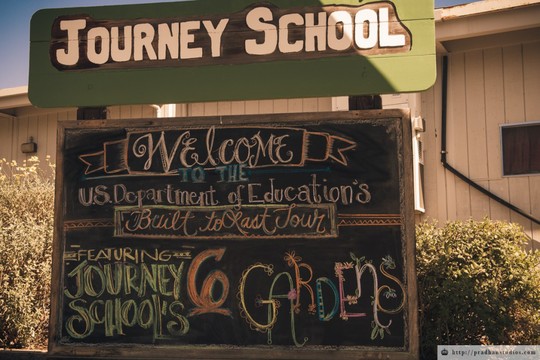 JOURNEY SCHOOL
Welcome
TO THE
U.S. Department of Education's
Built to Last Tour
FEATURING
JOURNEY
SCHOOL'S
6
GARDENS
http://pradhanstudios.com